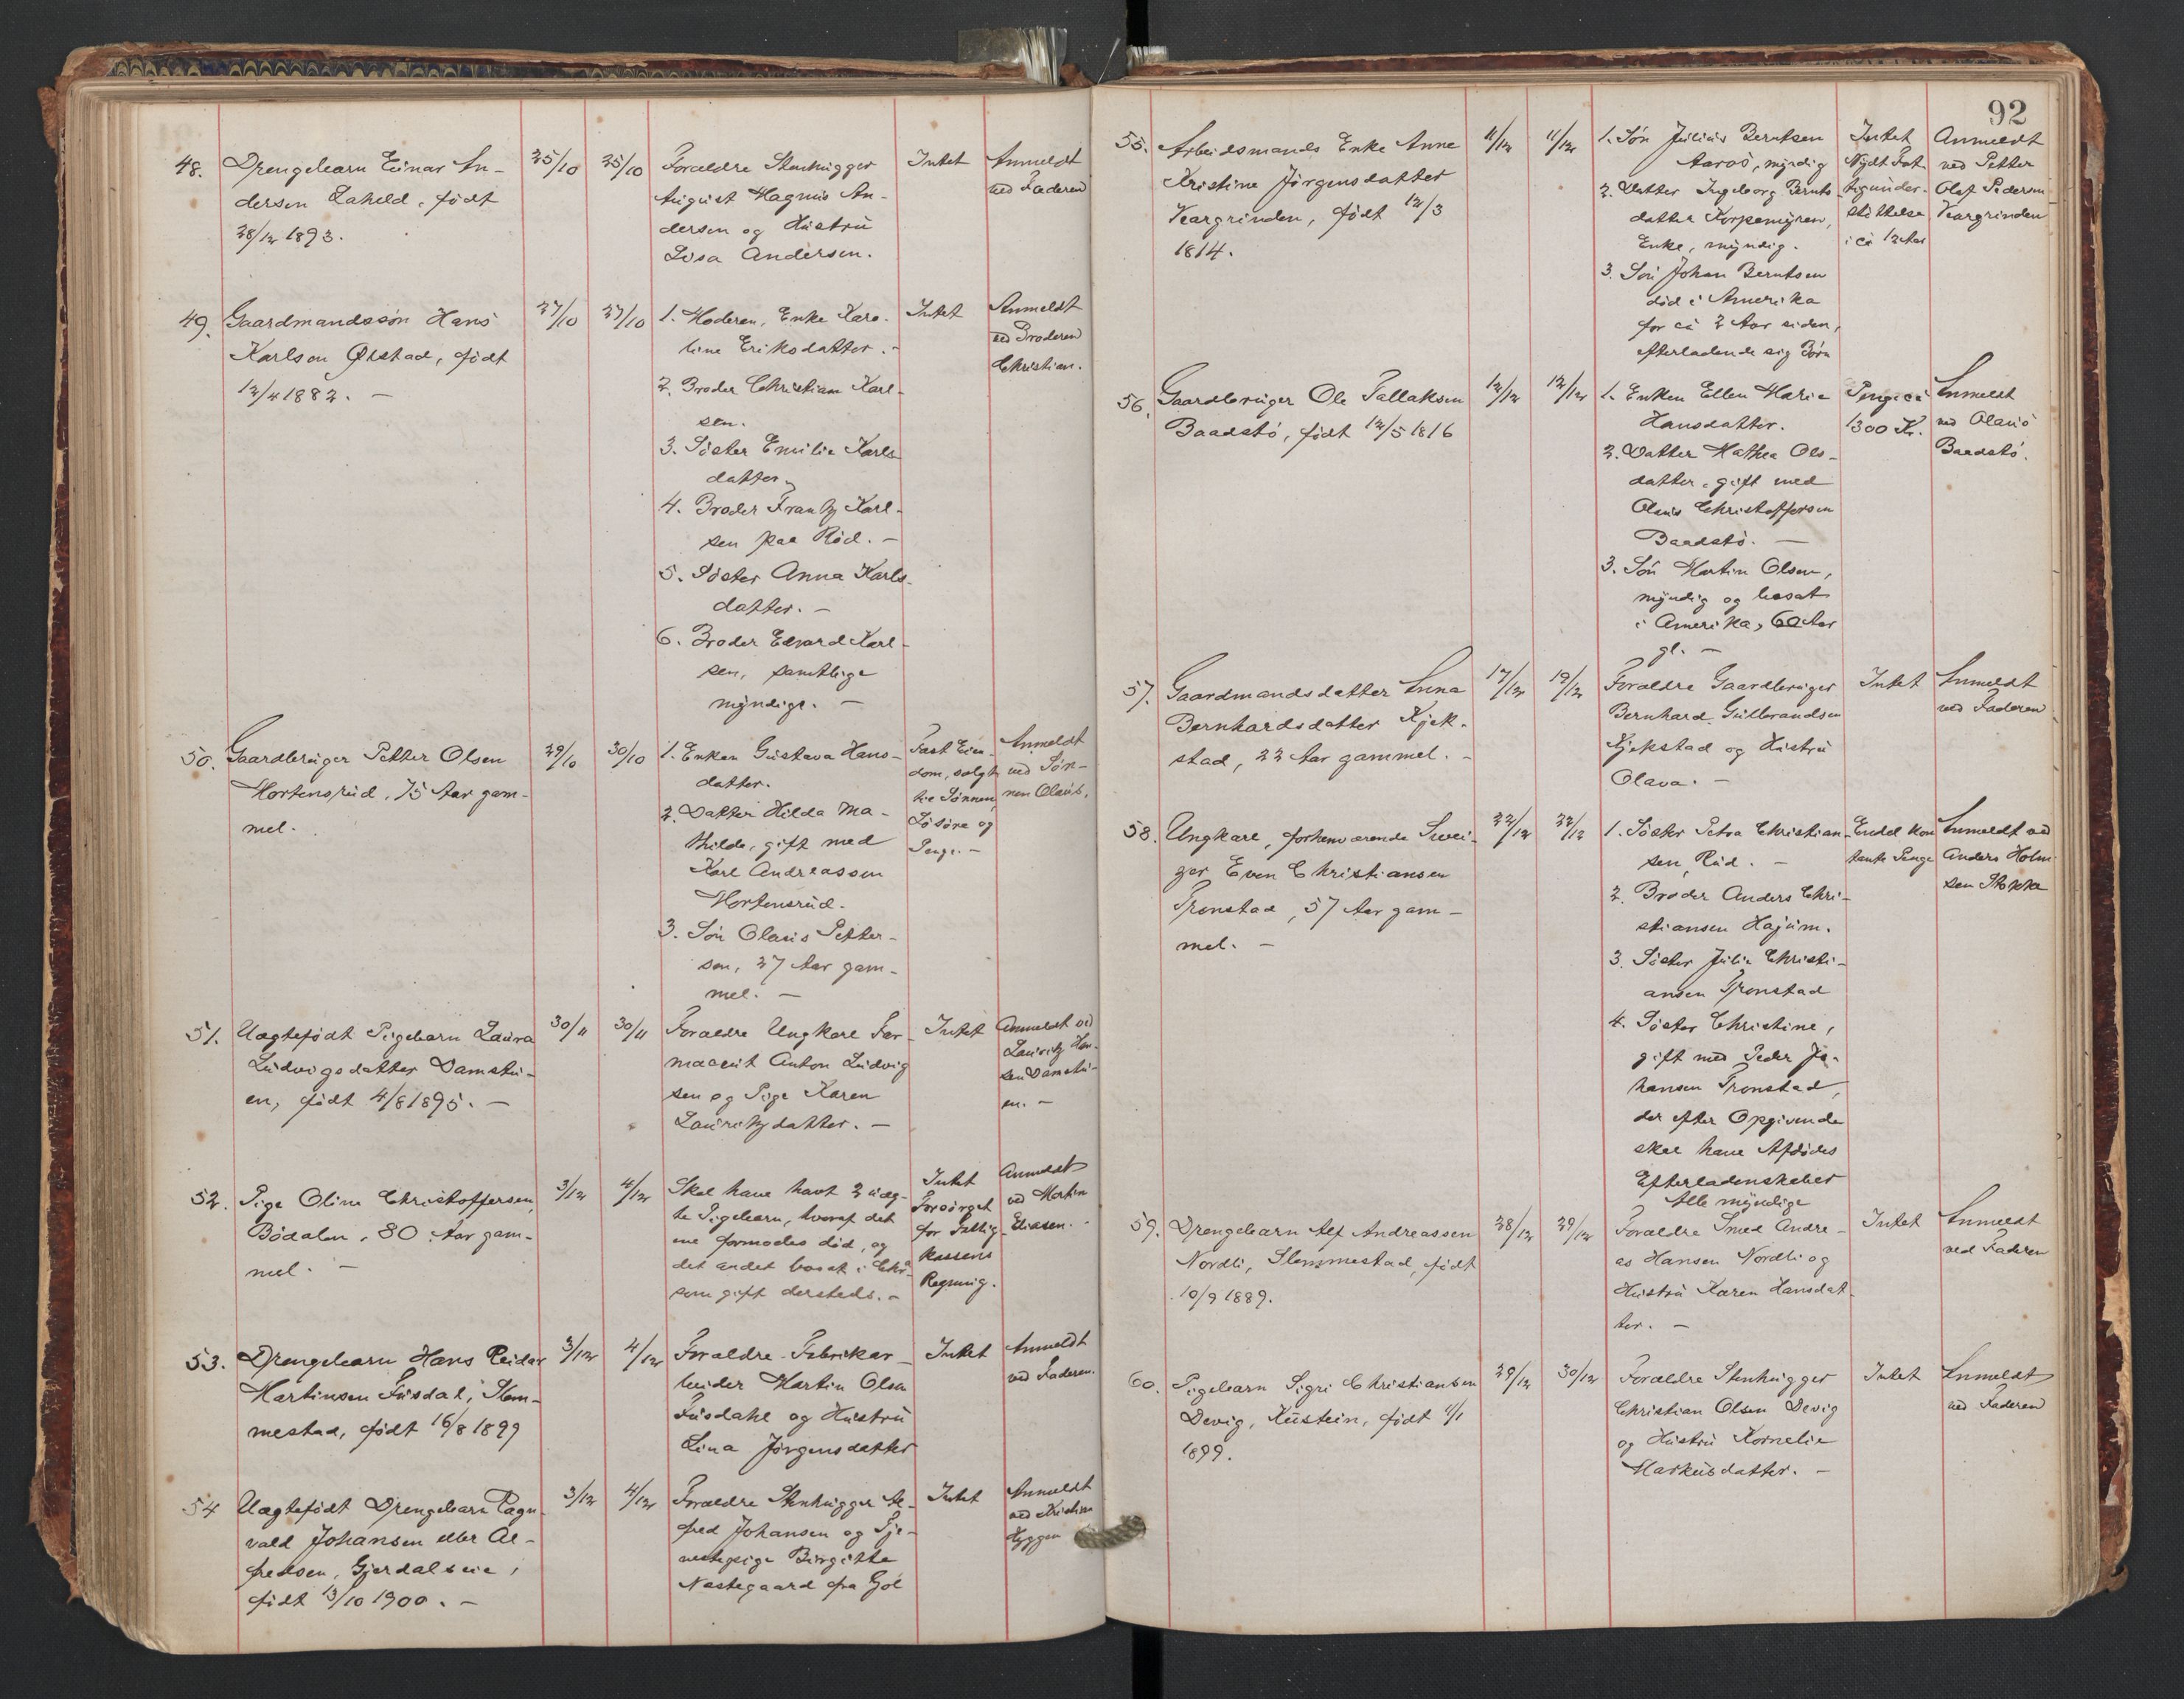 48. Drengebarn Einar An-
dersen Laheld, født
28/12 1893.
25/10 25/10
Forældre Stenhugger
August Magnus An-
dersen og Hustru
Lovisa Andersen.
Intet
Anmeldt
ved Faderen
49. Gaardmandssøn Hans
Karlsen Ørstad, født
12/4 1882. —
27/10 27/10
1. Moderen, Enke Karo-
line Eriksdatter. -
2. Broder Christian Karl-
sen.
3. Søster Emilie Karls-
datter
4. Broder Frantz Karl-
sen paa Rød. —
5. Søster Anna Karls-
datter. —
6. Broder Edvard Karl-
sen, samtlige
myndige. —
Intet
Anmeldt
ved Broderen
Christian.
50. Gaardbruger Petter Olsen
Mortensrud, 75 Aar gam-
mel.
29/10 30/10
1. Enken Gustava Hans-
datter.
2. Datter Hilda Ma-
thilde, gift med
Karl Andreassen
Mortensrud.
3. Søn Olaus Petter-
sen, 27 Aar gam-
mel. —
Fast Eien-
dom, solgt
til Sønnen,
Løsøre og
Penge. —
Anmeldt
ved Søn-
nen Olaus.
51. Uægtefødt Pigebarn Laura
Ludvigsdatter Damstu-
en, født 4/8 1895. —
30/11 30/11
Forældre Ungkarl Far-
maceut Anton Ludvig
sen og Pige Karen
Lauritzdatter. —
Intet
Anmeldt ved
Lauritz Han-
sen Damstu-
en. —
52. Pige Oline Christoffersen
Bødalen, 80 Aar gam-
mel. —
3/12 4/12
Skal have havt 2 uæg-
te Pigebarn, hvoraf det
ene formodes død, og
det andet bosat i
som gift dersteds. —
Intet
Forsørget
for Fattig-
kassens
Regning.
Anmeldt
ved Martin
Eliasen. -
53. Drengebarn Hans Reidar
Martinsen Fusdal, Slem-
mestad, født 16/8 1899
3/12 4/12
Forældre Fabrikar-
beider Martin Olsen
Fusdahl og Hustru
Lina Jørgensdatter
Intet
Anmeldt
ved Faderen.
54 Uægtefødt Drengebarn Ragn-
vald Johansen eller Al-
fredsen, Gjerdalseie,
født 13/10 1900. —
3/12 4/12
Forældre Stenhugger Al-
fred Johansen og Tje-
nestepige Birgitte
Næstegaard fra Gol
Intet
Anmeldt
ved Kristian
Hyggen
92
55. Arbeidsmands Enke Anne
Kristine Jørgensdatter
Veargrinden, født 12/3
1814.
11/12 11/12
1. Søn Julius Berntsen
Aaros, myndig
2. Datter Ingeborg Bernts-
datter Korpemyren,
Enke, myndig.
3. Søn Johan Berntsen
død i Amerika
for ca 2 Aar siden,
efterladende sig Børn
Intet
Nydt Fat-
tigunder-
støttelse
i ca 12 Aar
Anmeldt
ved Petter
Olaf Pedersen
Veargrinden
56. Gaardbruger Ole Tallaksen
Baadstø, født 12/5 1816
12/12 12/12
1. Enken Ellen Marie
Hansdatter.
2. Datter Mathea Ols-
datter, gift med
Olaus Christoffersen
Baadstø. —
3. Søn Martin Olsen,
myndig og bosat
i Amerika, 60 Aar
gl. —
Penge ca
1300 Kr.
Anmeldt
ved Olaus
Baadstø.
57. Gaardmandsdatter Anna
Bernhardsdatter Kjek-
stad, 22 Aar gammel. -
17/12 19/12
Forældre Gaardbruger
Bernhard Gulbrandsen
Kjekstad og Hustru
Olava. —
Intet
Anmeldt
ved Faderen
58. Ungkarl, forhenværende Svei-
ger Even Christiansen
Tronstad, 57 Aar gam-
mel. —
22/12 22/12
1. Søster Petra Christian-
sen, Rud. —
2. Broder Anders Chri-
stiansen Hajum.
3. Søster Julie Christi-
ansen Tronstad
4. Søster Christine,
gift med Peder Jo-
hansen Tronstad,
der efter Opgivende
skal have Afdødes
Efterladenskaber
Alle myndige
Endel kon
tante Penge
Anmeldt ved
Anders Holm-
sen Stokke
59. Drengebarn Alf Andreassen
Nordli, Slemmestad, født
10/9 1889.
28/12 29/12
Forældre Smed Andre-
as Hansen Nordli og
Hustru Karen Hansdat-
ter. —
Intet
Anmeldt
ved Faderen
60. Pigebarn Sigri Christiansen
Devig, født 1/1
1899.
29/12 30/12
Forældre Stenhugger
Christian Olsen Devig
og Hustru Kornelie
Markusdatter. —
Intet
Anmeldt
ved Faderen